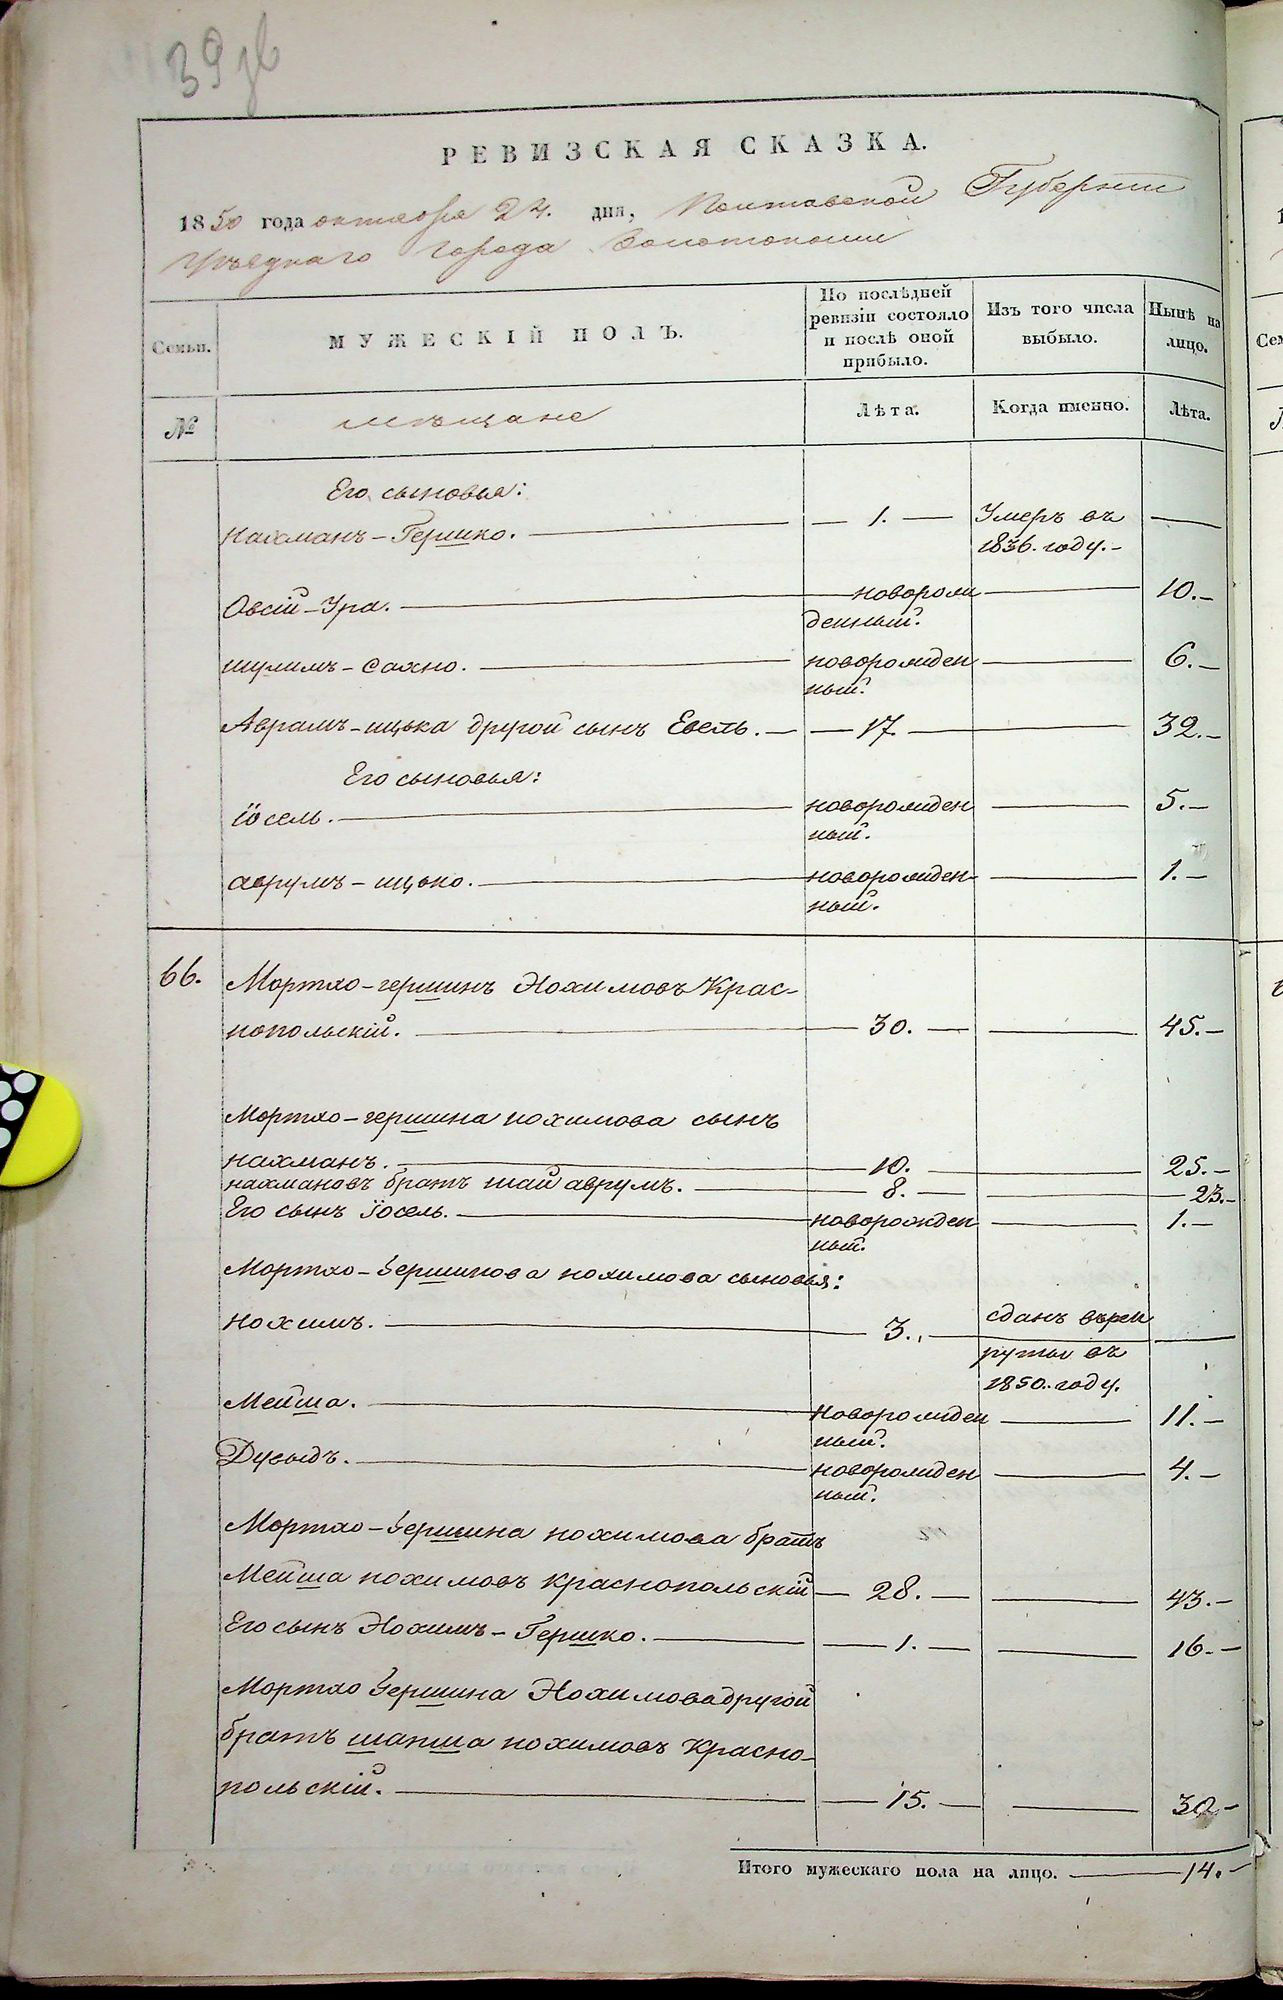 39 зв
РЕВИЗСКАЯ СКАЗКА.
1850 года октября 24. дня, Полтавской Губернии
Уѣзднаго города Золотоноши
Семьи.
МУЖЕСКІЙ ПОЛЪ.
По послѣдней ревизіи состояло и послѣ оной прибыло.
Изъ того числа выбыло.
Нынѣ на лицо.
№
мѣщане
Лѣта.
Когда именно.
Лѣта.
Его сыновья:
Нахманъ-Гершко. 1. Умеръ въ
1836. году.
Овсій-Ура. новорож 10.
денный.
шулимъ-сахно. новорожден 6.
ный.
Аврамъ-ицька другой сынъ Евель. 17. 32.
Его сыновья:
іосель. новорожден 5.
ный.
аврумъ-ицько. новорожден 1.
ный.
66. Мортхо-гершинъ Нохимовъ Крас-
нопольскій. 30. 45.
Мортхо-гершина нохимова сынъ
нахманъ. 10. 25.
нахмановъ братъ шай аврумъ. 8. 23.
Его сынъ іосель. новорожден 1.
ный.
Мортхо-Гершинова нохимова сыновья:
нохимъ. 3. сданъ върек
руты въ
1850. году.
Мейша. новорожден 11.
ный.
Дувыдъ. новорожден 4.
ный.
Мортхо-Гершина нохимова братъ
Мейша нохимовъ краснопольскій 28. 43.
Его сынъ Нохимъ-Гершко. 1. 16.
Мортхо Гершина Нохимова другой
братъ шапша нохимовъ Красно-
польскій. 15. 30
Итого мужескаго пола на лицо. 14.